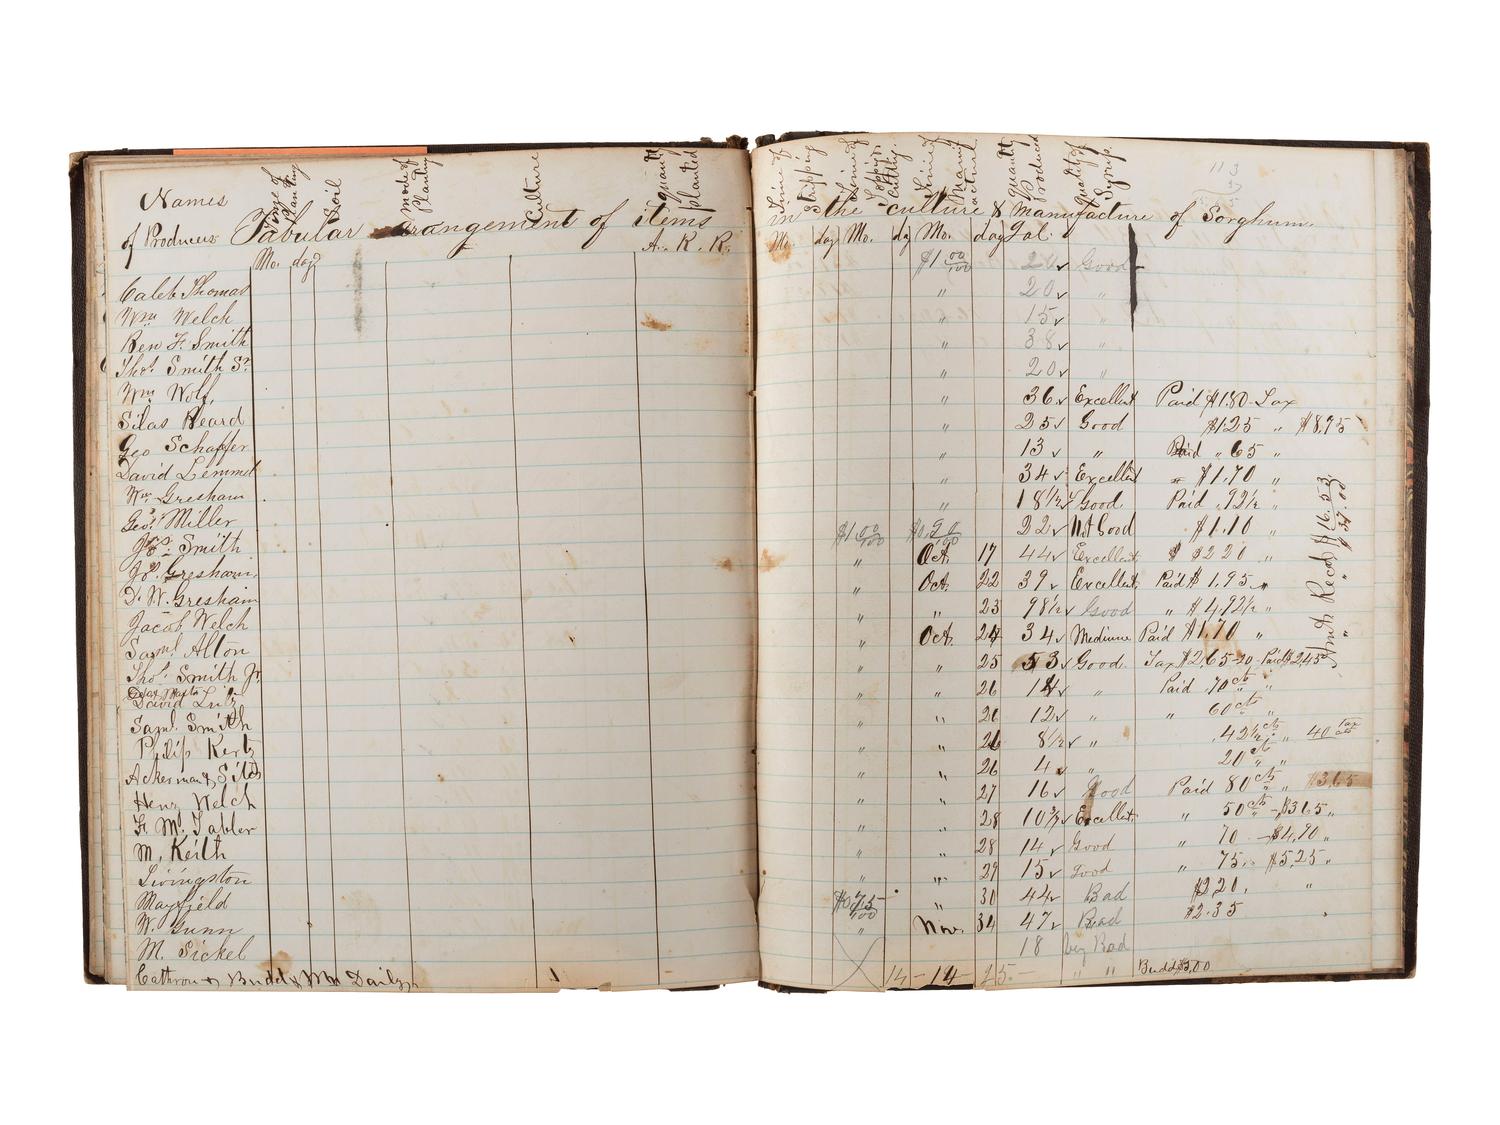 Names
of Producers
Time of Planting
Soil
mode of Planting
Culture
quantt planted
Tabular arangement of items
A. R. R.
Mo. day
Caleb Thomas
Wm Welch
Ben F. Smith
Thos. Smith Sr.
Wm Wolf,
Silas Heard
Geo Schaffer
David Lemmel
Wm. Gresham
Geo. Miller
Jos. Smith
Jos. Gresham,
D. W. Gresham
Jacob Welch
Saml. Alton
Thos. Smith Jr.
David Lutz
Saml. Smith
Philip Kertz
Ackerman & Sitch
Henz Welch
F. M. Tabler
M. Keith
Livingston
Mayfield
W. Gunn
M. Sickel
Cathron & Budd & Mr Daily
Time of Stripping
Time of Topping & Cutting.
Time of Manufactured
Quantit Produced
Quality of Syrup.
in the culture & manufacture of Sorghum.
Mo. day Mo. dy Mo. day Gal.
$1 00/100 20 Good
" 20 "
" 15 "
" 38 "
" 20 "
" 36 Excellent Paid $1.80 Tax
" 25 Good $1.25 " $8.95
" 13 " Paid " 65 "
" 34 Excellent " $1.70 "
" 18 1/2 Good Paid .92 1/2 "
$1 00/100 $0. 90/100 22 Not Good $1.10 "
" Oct. 17 44 Excellent $ $2 20 "
" Oct. 22 39 Excellent Paid $1.95 "
" " 23 98 1/2 Good " $4,92 1/2 "
" Oct. 24 34 Medium Paid $1.70 "
" " 25 53 Good Tax $2.65-20-Paid $2.45
" " 26 14 " Paid .70 cts "
" " 26 12 " " 60 cts "
" " 26 8 1/2 " .42 1/2 cts " 40 tax
" " 26 4 " 20 cts "
" " 27 16 Good Paid 80 cts " $3.65
" " 28 10 3/4 Excellent " 50 cts - $3.65 "
" " 28 14 Good " 70 - $4.90 "
" " 29 15 Good " 75 " $5,25 "
$0.75/100 " 30 44 Bad $2.20, "
" Nov. 31 47 Bad $2.35
18 very Bad
14-14 25.- " " Budd $5,00
Amt. Recd $16.53
" " $37.00